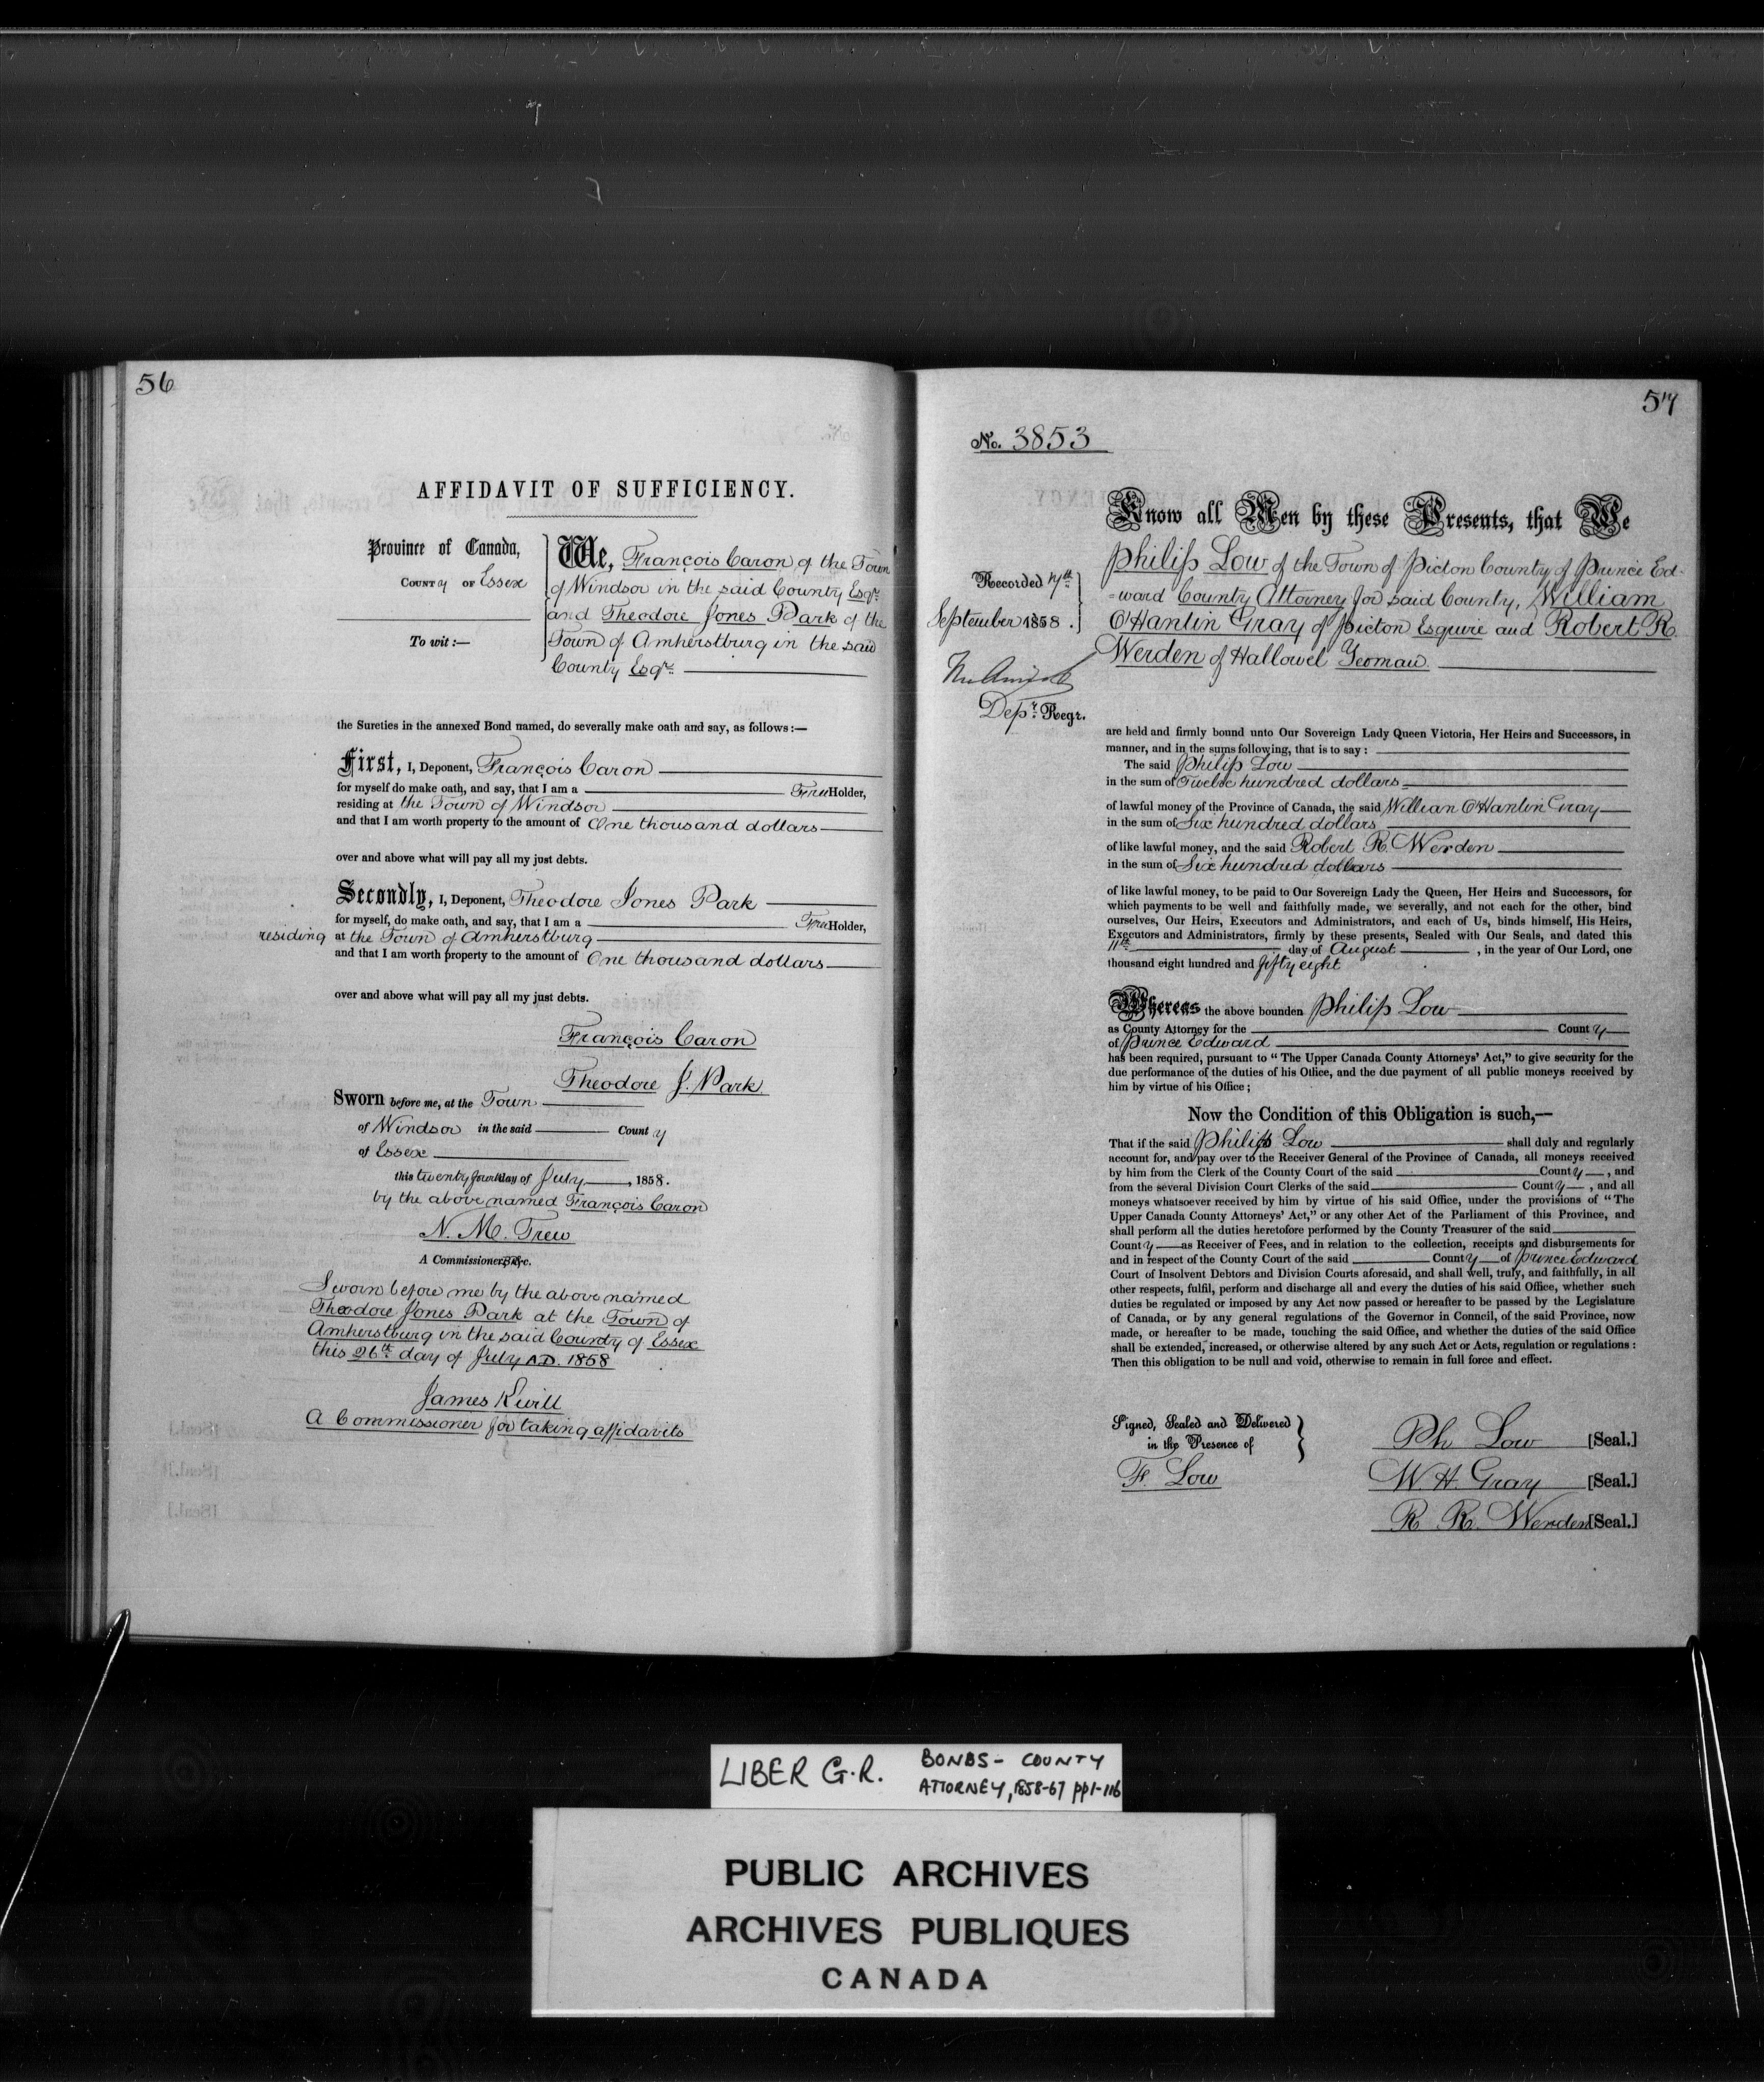 56
AFFIDAVIT OF SUFFICIENCY.
Province of Canada,
COUNTy OF Essex
To wit:—
We, François Caron of the Town
of Windsor in the said County Esqr.
and Theodore Jones Park of the
Town of Amherstburg in the said
County Esqr.
the Sureties in the annexed Bond named, do severally make oath and say, as follows:—
First, I, Deponent, François Caron
for myself do make oath, and say, that I am a FreeHolder,
residing at the Town of Windsor
and that I am worth property to the amount of One thousand dollars
over and above what will pay all my just debts.
Secondly, I, Deponent, Theodore Jones Park
for myself, do make oath, and say, that I am a FreeHolder,
residing at the Town of Amherstburg
and that I am worth property to the amount of One thousand dollars
over and above what will pay all my just debts.
François Caron
Theodore J. Park
Sworn before me, at the Town
of Windsor in the said County
of Essex
this twenty fourth day of July, 1858.
by the above named François Caron
N. M. Trew
A Commissioner, &c.
Sworn before me by the above named
Theodore Jones Park at the Town of
Amherstburg in the said County of Essex
this 26th day of July A.D. 1858
James Kevill
A Commissioner for taking affidavits
57
No. 3853
Know all Men by these Presents, that We
Philip Low of the Town of Picton County of Prince Ed-
=ward County Attorney for said County, William
O'Hanlin Gray of Picton Esquire and Robert R.
Werden of Hallowel Yeoman.
Recorded 7th
September 1858.
Depr. Regr.
are held and firmly bound unto Our Sovereign Lady Queen Victoria, Her Heirs and Successors, in
manner, and in the sums following, that is to say:
The said Philip Low
in the sum of Twelve hundred dollars
of lawful money of the Province of Canada, the said William O'Hanlin Gray
in the sum of Six hundred dollars
of like lawful money, and the said Robert R. Werden
in the sum of Six hundred dollars
of like lawful money, to be paid to Our Sovereign Lady the Queen, Her Heirs and Successors, for
which payments to be well and faithfully made, we severally, and not each for the other, bind
ourselves, Our Heirs, Executors and Administrators, and each of Us, binds himself, His Heirs,
Executors and Administrators, firmly by these presents, Sealed with Our Seals, and dated this
11th day of August, in the year of Our Lord, one
thousand eight hundred and fifty eight
Whereas the above bounden Philip Low
as County Attorney for the County
of Prince Edward
has been required, pursuant to "The Upper Canada County Attorneys' Act," to give security for the
due performance of the duties of his Office, and the due payment of all public moneys received by
him by virtue of his Office;
Now the Condition of this Obligation is such,—
That if the said Philip Low shall duly and regularly
account for, and pay over to the Receiver General of the Province of Canada, all moneys received
by him from the Clerk of the County Court of the said County, and
from the several Division Court Clerks of the said County, and all
moneys whatsoever received by him by virtue of his said Office, under the provisions of "The
Upper Canada County Attorneys' Act," or any other Act of the Parliament of this Province, and
shall perform all the duties heretofore performed by the County Treasurer of the said
County as Receiver of Fees, and in relation to the collection, receipts and disbursements for
and in respect of the County Court of the said County of Prince Edward
Court of Insolvent Debtors and Division Courts aforesaid, and shall well, truly, and faithfully, in all
other respects, fulfil, perform and discharge all and every the duties of his said Office, whether such
duties be regulated or imposed by any Act now passed or hereafter to be passed by the Legislature
of Canada, or by any general regulations of the Governor in Conncil, of the said Province, now
made, or hereafter to be made, touching the said Office, and whether the duties of the said Office
shall be extended, increased, or otherwise altered by any such Act or Acts, regulation or regulations:
Then this obligation to be null and void, otherwise to remain in full force and effect.
Signed, Sealed and Delivered
in the Presence of
F. Low
Ph Low [Seal.]
W. H. Gray [Seal.]
R R. Werden [Seal.]
LIBER G.R. BONDS - COUNTY
ATTORNEY, 1858-67 pp1-116
PUBLIC ARCHIVES
ARCHIVES PUBLIQUES
CANADA